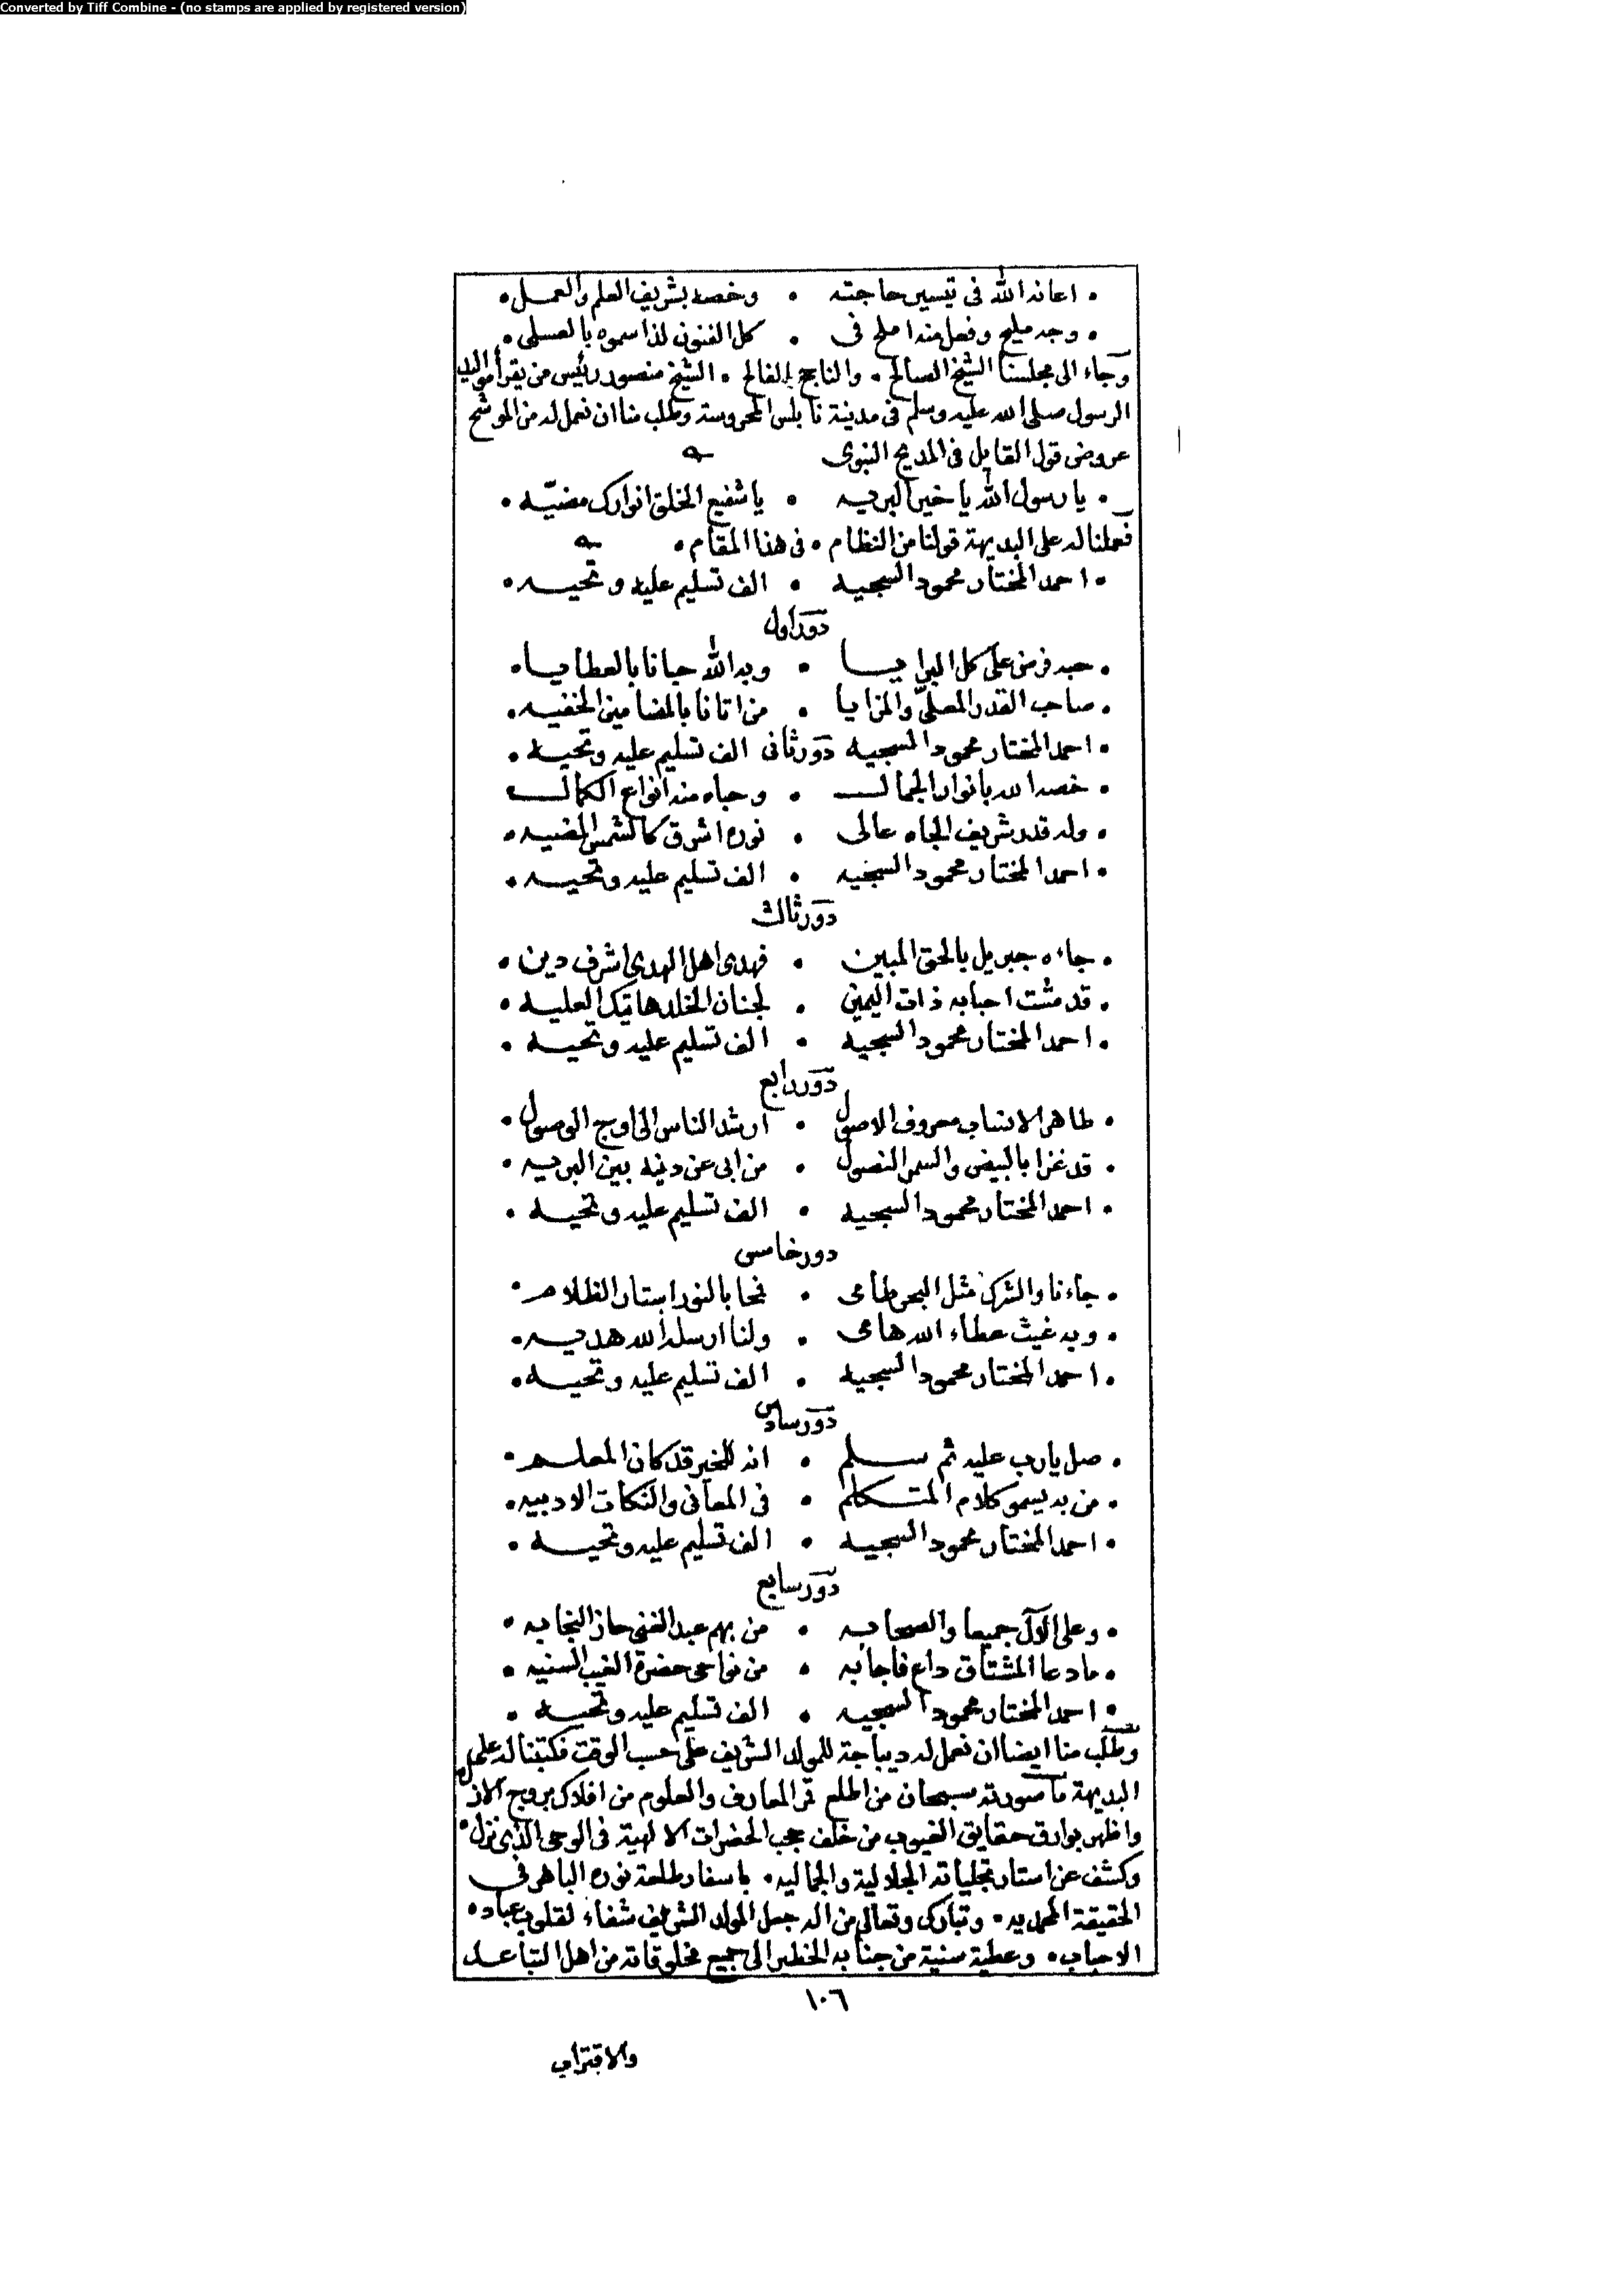 Converted by Tiff Combine - (no stamps are applied by registered version)
• اعانه الله فى تيسير حاجته • وخصه بشريف العلم والعمل •
• وجه مليح وفعل منه املح فى • كل الفنون لذا سموه بالعسلى •
وجاء الى مجلسنا الشيخ الصالح • والناجح الفالح • الشيخ منصور رئيس من يقرأ مواليد
الرسول صلى الله عليه وسلم فى مدينة نابلس المحروسة وطلب منا ان نعمل له من الموشح
عروض قول القايل فى المديح النبوى
• يا رسول الله يا خير البريه • يا شفيع الخلق انوارك مضيّه •
فعملنا له على البديهة قولنا من النظام • فى هذا المقام •
• احمد المختار محمود السجيه • الف تسليم عليه وتحيه •
دور اول
• حبه فرض على كل البرايا • وبه الله حبانا بالعطايا •
• صاحب القدر المعلىّ والمزايا • من اتانا بالمضامين الخفيه •
• احمد المختار محمود السجيه دور ثانى الف تسليم عليه وتحيه •
• خصه الله بانوار الجمال • وحباه منه انواع الكمال
• وله قدر شريف الجاه عالى • نوره اشرق كالشمس المضيه •
• احمد المختار محمود السجيه • الف تسليم عليه وتحيه •
دور ثالث
• جاءه جبريل بالحق المبين • فهدى اهل الهدى اشرف دين •
• قد مشت احبابه ذات اليمين • لجنان الخلد هاتيك العليه •
• احمد المختار محمود السجيه • الف تسليم عليه وتحيه •
دور رابع
• طاهر الانساب معروف الاصول • ارشد الناس الى اوج الوصول •
• قد غزا بالبيض والسمر النصول • من ابى عن دينه بين البريه •
• احمد المختار محمود السجيه • الف تسليم عليه وتحيه •
دور خامس
• جاءنا والشرك مثل البحر طامى • فمحا بالنور استار الظلام •
• وبه غيث عطاء الله هامى • ولنا ارسله الله هديه •
• احمد المختار محمود السجيه • الف تسليم عليه وتحيه •
دور سادس
• صل يا رب عليه ثم سلم • انه للخير قد كان المعلم •
• من به يسمو كلام المتكلم • فى المعانى والنكات الادبيه •
• احمد المختار محمود السجيه • الف تسليم عليه وتحيه •
دور سابع
• وعلى الآل جميعا والصحابه • من بهم عبد الغنى حاز النجابه •
• ما دعا المشتاق داع فاجابه • من نواحى حضرة الغيب السنيه •
• احمد المختار محمود السجيه • الف تسليم عليه وتحيه •
وطلب منا ايضا ان نعمل له ديباجة للمولد الشريف على حسب الوقت فكتبنا له على
البديهة ما صورته سبحان من اطلع قمر المعارف والعلوم من افلاك بروج الازل
واظهر بوارق حقايق الغيوب من خلف حجب الحضرات الالهية فى الوحى الذى نزل •
وكشف عن استار تجلياته الجلالية والجماليه • باسفار طلعة نوره الباهر فى
الحقيقة المحمديه • وتبارك وتعالى من اله جعل المولد الشريف شفاء لقلوب عباده
الاحباب • وعطية سنية من جنابه الخطير الى جميع مخلوقاته من اهل التباعد
١٠٦
والاقتراب